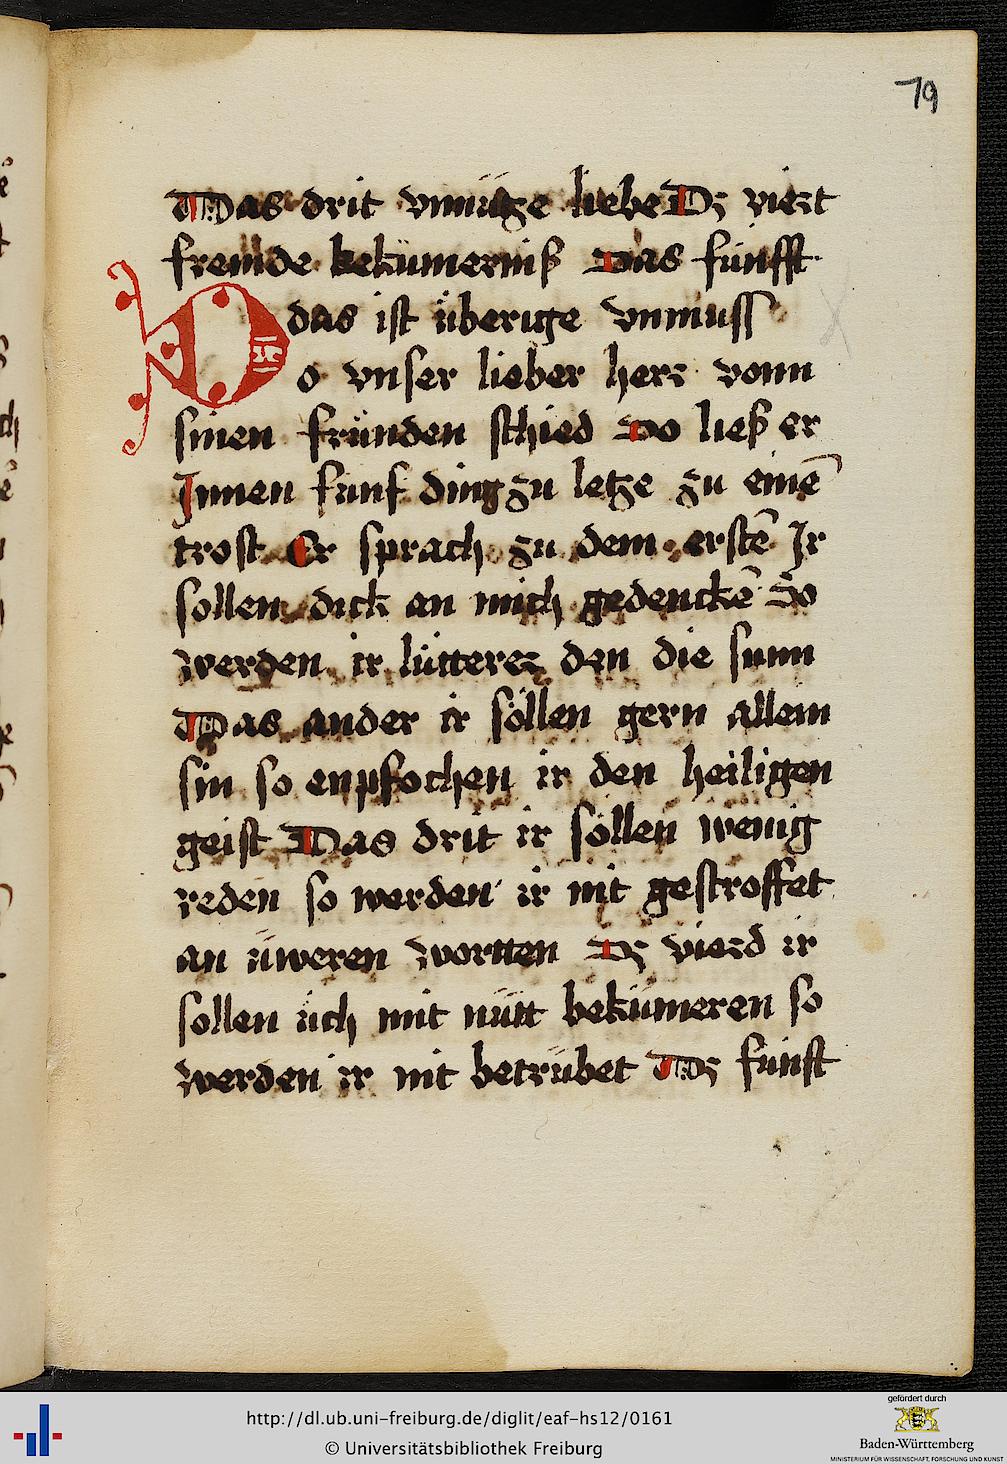 79
Das drit vnnütze liebe Dz viert
fremde bekümerniß Das fünfft
das ist überige vnmuss
Do vnser lieber herr vonn
sinen fründen schied Do ließ er
Jnnen fünf ding zu letze zu einē
trost Er sprach zu dem erstē Jr
sollen dick an mich gedenckē So
werden ir lütterer den die sunn
Das ander ir söllen gern allein
sin so enpfochen ir den heiligen
geist Das drit ir söllen wenig
reden so werden ir nit gestroffet
an üweren wortten Dz vierd ir
sollen üch mit nütt bekümeren so
werden ir nit betrübet Dz fünft
http://dl.ub.uni-freiburg.de/diglit/eaf-hs12/0161
© Universitätsbibliothek Freiburg
gefördert durch
Baden-Württemberg
MINISTERIUM FÜR WISSENSCHAFT, FORSCHUNG UND KUNST